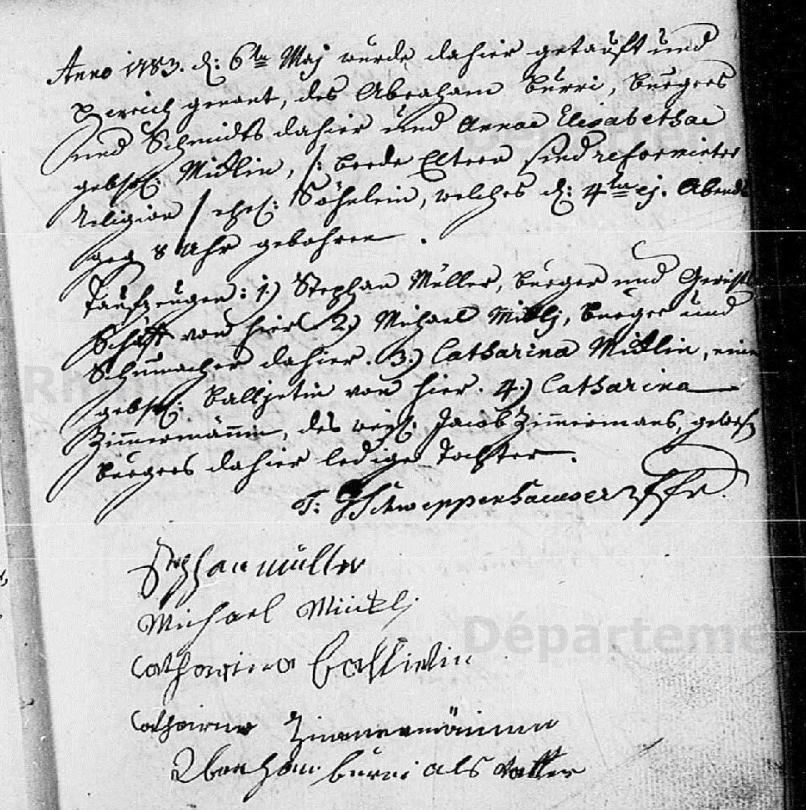 Anno 1783. d: 6ten Maj wurde dahier getauft und
genant, des Abraham Burri, Burgers
und Schmidts dahier und Annae Elisabethae
gebohr. Müklin, /: beede Eltern sind reformirter
religion / ehel: Söhnlein, welches d: 4ten ej. Abends
geg 8 Uhr gebohren.
Taufzeugen: 1.) Stephan Müller, burger und Gerichts
Schöff von hier 2.) Michael Mükli, burger und
Schumacher dahier. 3.) Catharina Müklin, eine
gebohr. von hier. 4.) Catharina
Zimmermännin, des weyl. Jacob Zimmermans, gewes.
burgers dahier ledige Tochter.
T: Schweppenhaeuser Pfr.
Stephan müller
Michael Mückli
Catharina
Catharina Zimmermännin
Abraham burri als Vatter
Départeme